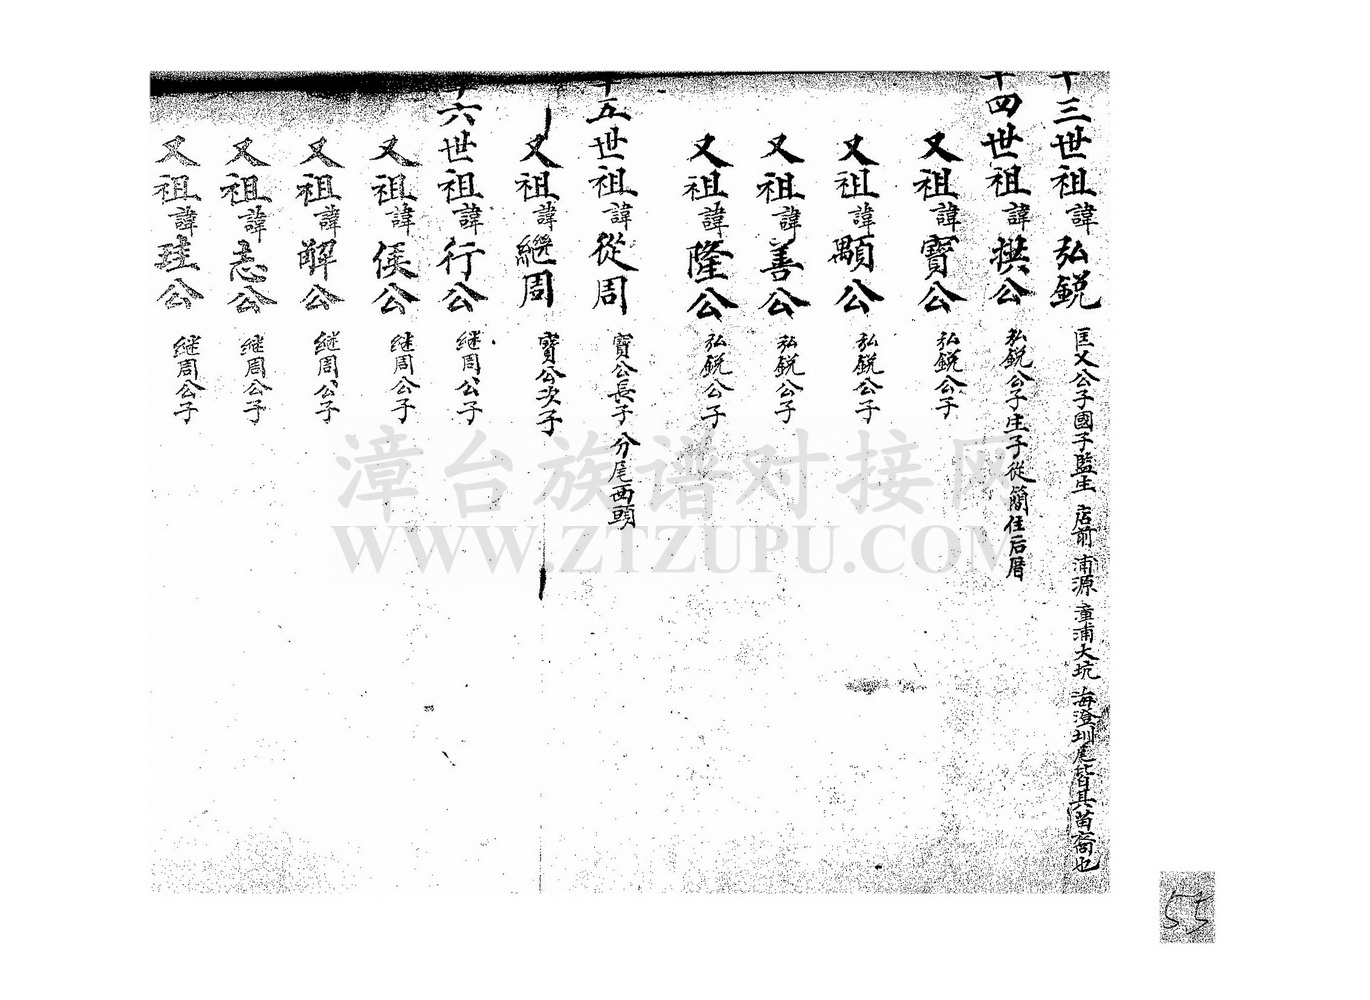 十三世祖諱弘鋭 匡义公子國子監生 店前 浦源 漳浦大坑 海澄圳尾皆其苗裔也
十四世祖諱拱公 弘鋭公子生子從簡住后厝
又祖諱寶公 弘鋭公子
又祖諱顒公 弘鋭公子
又祖諱善公 弘鋭公子
又祖諱隆公 弘鋭公子
十五世祖諱從周 寶公長子 分尾西頭
又祖諱繼周 寶公次子
十六世祖諱行公 继周公子
又祖諱侯公 继周公子
又祖諱解公 继周公子
又祖諱志公 继周公子
又祖諱珪公 继周公子
漳台族谱对接网
WWW.ZTZUPU.COM
55